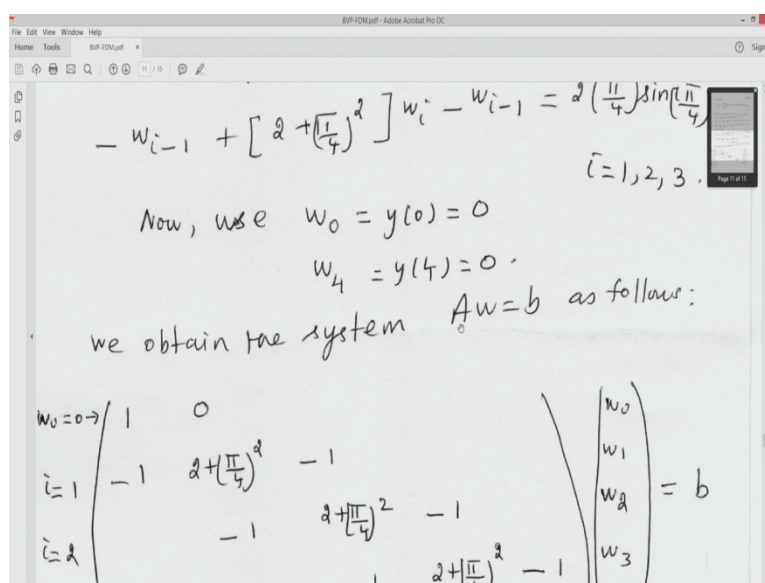 BVP-FDM.pdf - Adobe Acrobat Pro DC
File Edit View Window Help
Home Tools BVP-FDM.pdf × Sign
11 / 15
- w_{i-1} + [2 + (π/4)^2] w_i - w_{i-1} = 2(π/4) sin(π/4)
i = 1, 2, 3.
Page 11 of 15
Now, use w_0 = y(0) = 0
w_4 = y(4) = 0.
we obtain the system Aw = b as follows:
w_0 = 0 → 1 0 w_0
i = 1 -1 2+(π/4)^2 -1 w_1
i = 2 -1 2+(π/4)^2 -1 w_2 = b
2+(π/4)^2 -1 w_3